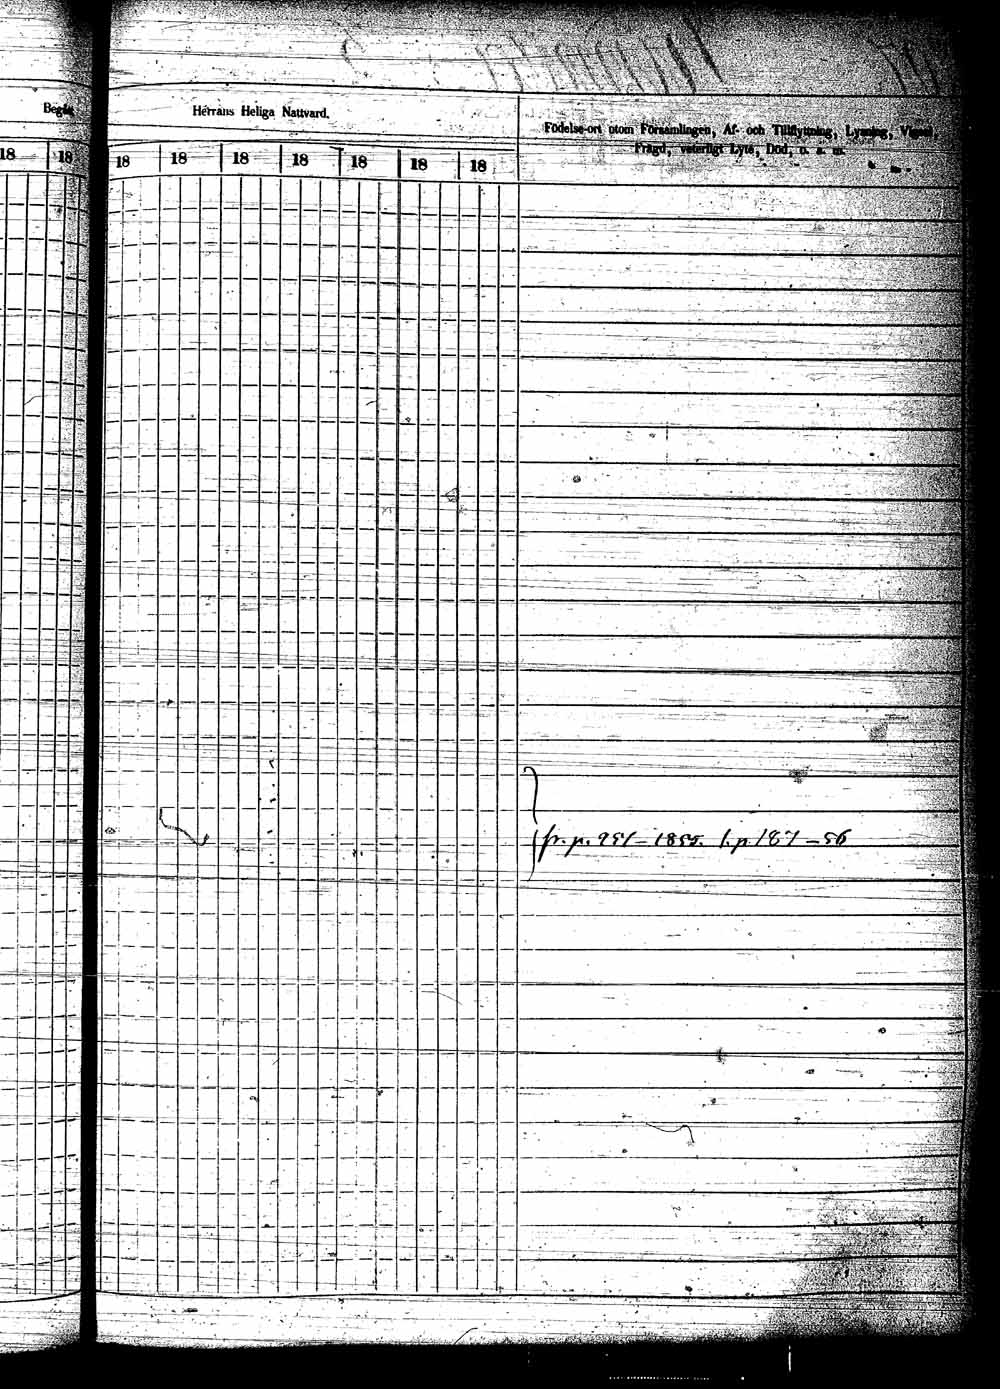 Begått
Herrans Heliga Nattvard.
Födelse-ort utom Församlingen, Af- och Tillflyttning, Lysning, Vigsel,
Frägd, veterligt Lyte, Död, o. s. m.
18 18 18 18 18 18 18 18 18
fr. p. 951 – 1855. l. p. 187 – 56